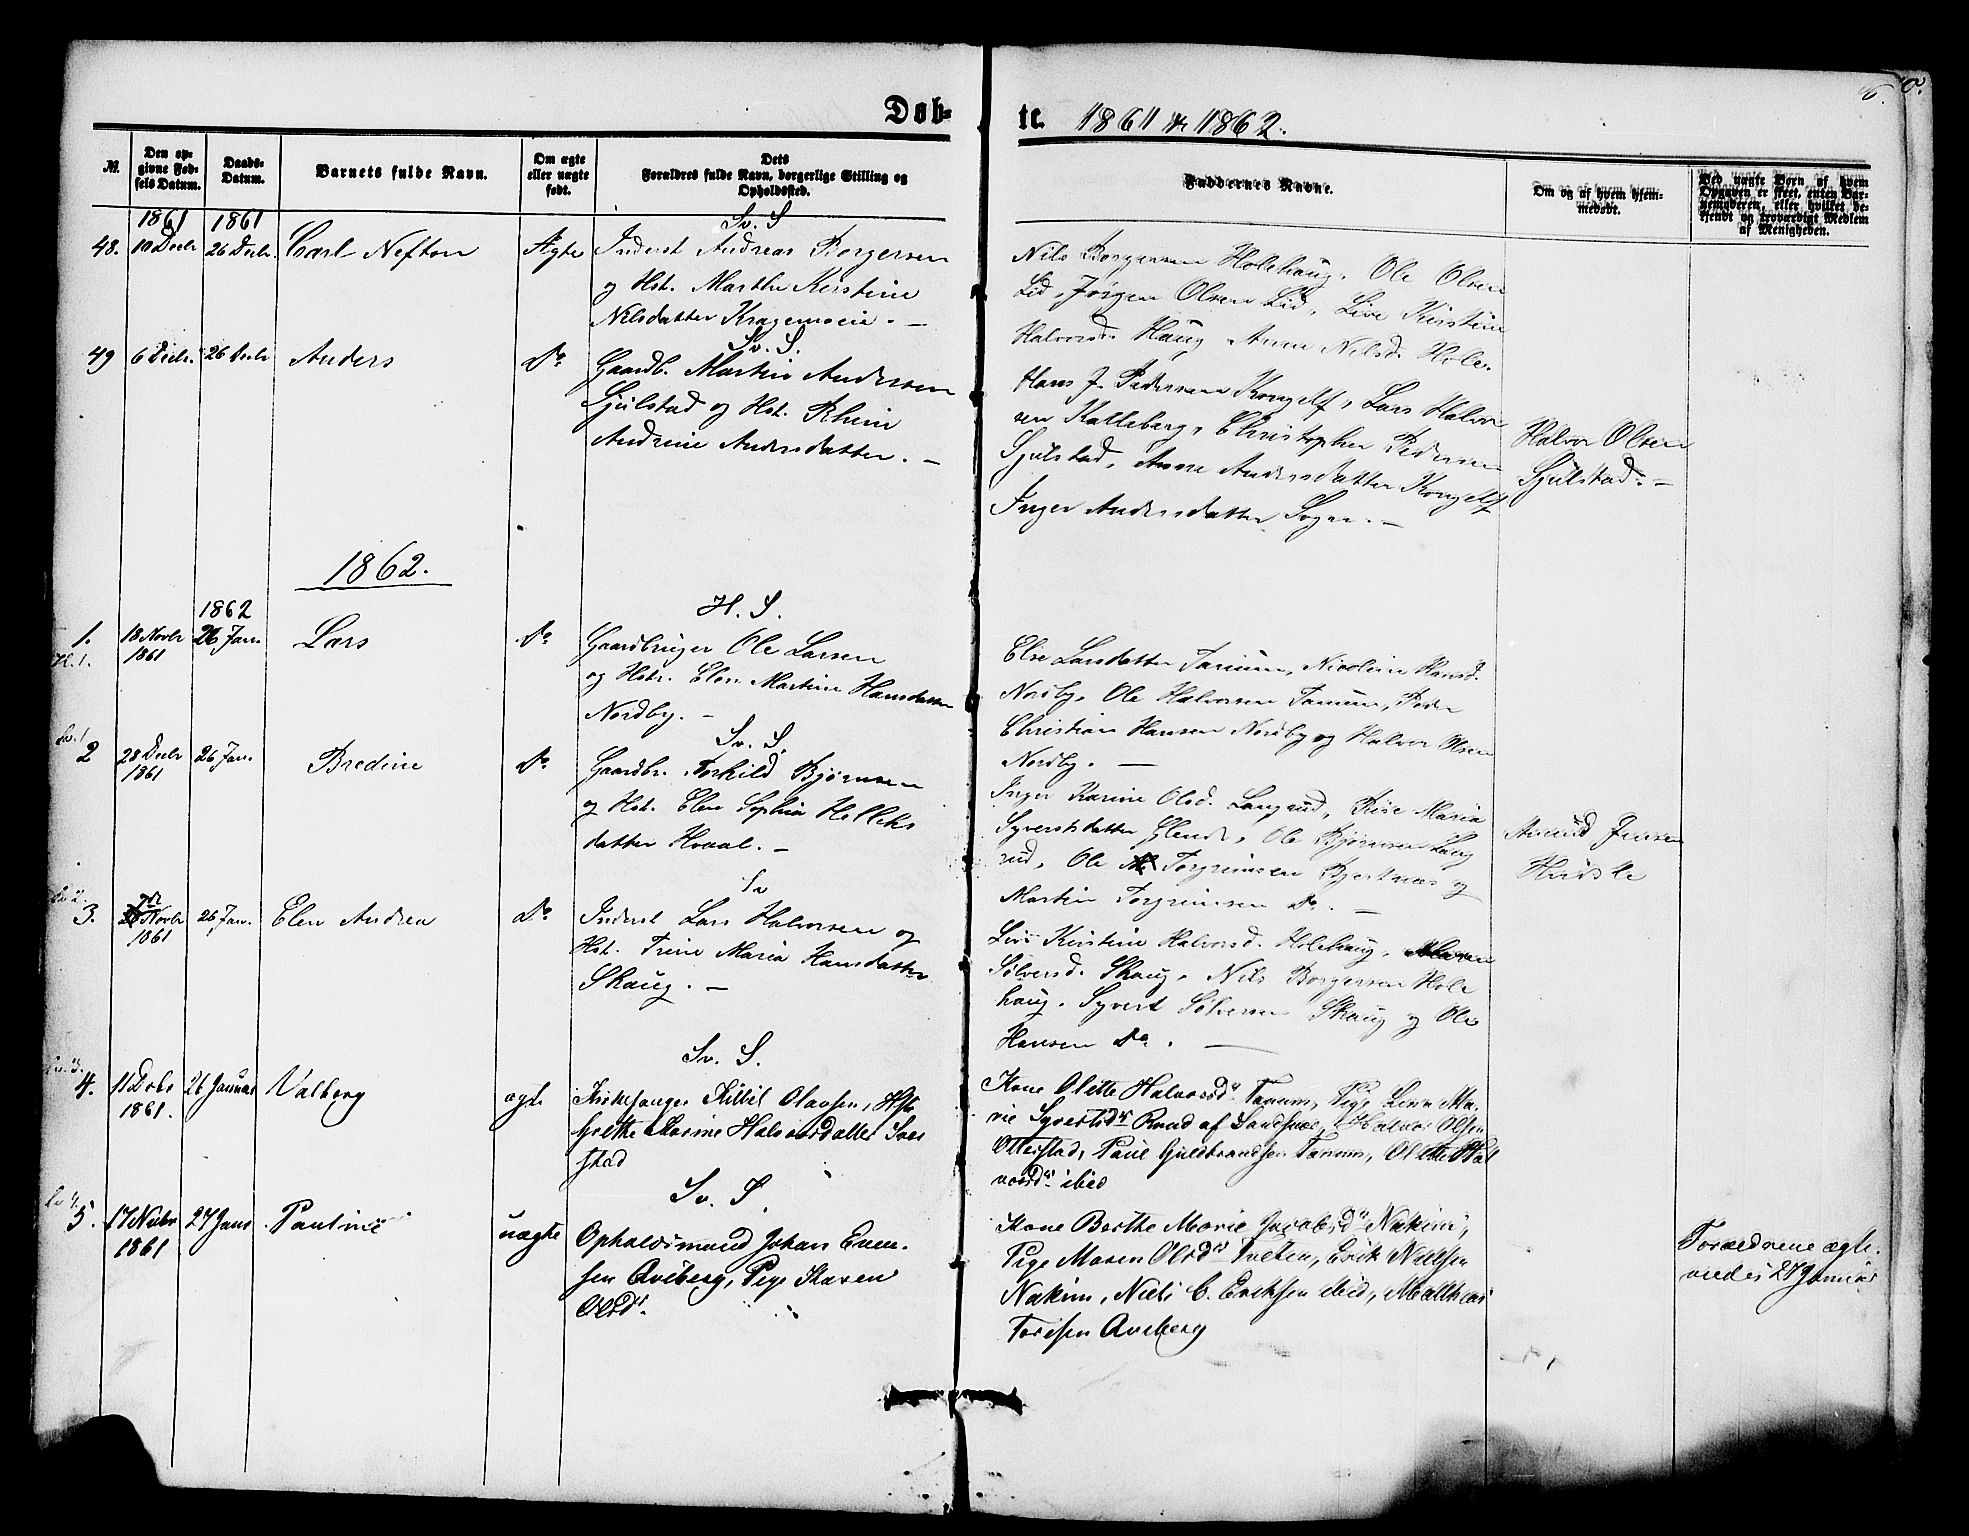 Døb-
te. 1861 & 1862.
6.
№.
Den op-
givne Fød-
sels Datum.
Daabs-
Datum.
Barnets fulde Navn.
Om ægte
eller uægte
født.
Dets
Forældres fulde Navn, borgerlige Stilling og
Opholdssted.
Faddernes Navne.
Om og af hvem hjem-
medøbt.
Ved uægte Børn af hvem
Opgaven er skeet, enten Bar-
nemoderen, eller hvilket be-
kjendt og troværdigt Medlem
af Menigheden.
1861 1861 Sv. S
48. 10 Decbr 26 Decbr. Carl Nefton Ægte Inderst Andreas Borgersen
og Hst. Marthe Kirstine
Nilsdatter Kragemoeie. —
Nils Borgersen Holehaug. Ole Olsen
Lid, Jørgen Olsen Lid, Live Kirstine
Halvorsd. Haug, Anne Nilsd. Hole.
Sv. S.
49 6 Decbr. 26 Decbr Anders Do Gaardbr. Martin Andersen
Gjulstad og Hst. Rhine
Andrine Andersdatter. —
Hans J. Pedersen Kongelf, Lars Halvor
sen Katteberg, Christopher Pedersen
Gjulstad, Anne Andersdatter Kongelf
Inger Andersdatter Sogn. —
Halvor Olsen
Gjulstad. —
1862.
1862 H. S.
1. 18 Novbr 26 Jan. Lars Do Gaardbruger Ole Larsen
H. 1. 1861 og Hstr. Elen Martine Hansdatter
Nordby. —
Else Larsdatter Tanum, Nicoline Hansd.
Nordby, Ole Halvorsen Tanum, Peder
Christian Hansen Nordby og Halvor Olsen
Nordby. —
Sv. 1 Sv. S.
2 28 Decbr 26 Jan. Bredine Do Gaardbr. Torkild Bjørnsen
1861 og Hst. Elen Sophia Helleks
datter Hvaal. —
Inger Karine Olsd. Langrud, Maria
Syvertsdatter Glende, Ole Bjørnsen Lang
rud, Ole Torgrimsen Bjertnæs og
Martin Torgrimsen Do. —
Amund Jensen
Sv. 2. Sv
3. Novbr 26 Jan. Elen Andrea Do Inderst Lars Halvorsen og
1861 Hst. Trine Maria Hansdatter
Skaug. —
Live Kirstine Halvorsd. Holehaug, Maren
Sølversd. Skaug, Nils Borgersen Hole
haug. Syvert Sølversen Skaug og Ole
Hansen Do. —
Sv. 3. Sv. S.
4. 11 Dcbr 26 Januar Valborg ægte Kirkesanger Killil Olavsen, Hstr
1861. Grethe Karine Halvorsdatter Sver
stad
Kone Olette Halvorsdr Tanum, Pige Lina Ma-
rie Syvertsdr Ruud af Sandsnæs, Halvor Olsen
Otterstad, Paul Guldbrandsen Tanum, Olette Hal
vorsdr ibid
Sv 4. Sv. S.
5. 17 Nvbr 27 Janr Pauline uægte Opholdsmand Johan Even-
1861 sen Aveberg, Pige Karen
Olsdr.
Kone Berthe Marie Jacobsdr Nakim,
Pige Maren Olsdr Tveten, Erik Nielsen
Nakim, Niels C. Eriksen ibid, Matthias
Toresen Aveberg
Forældrene ægte-
viedes 27 Januar